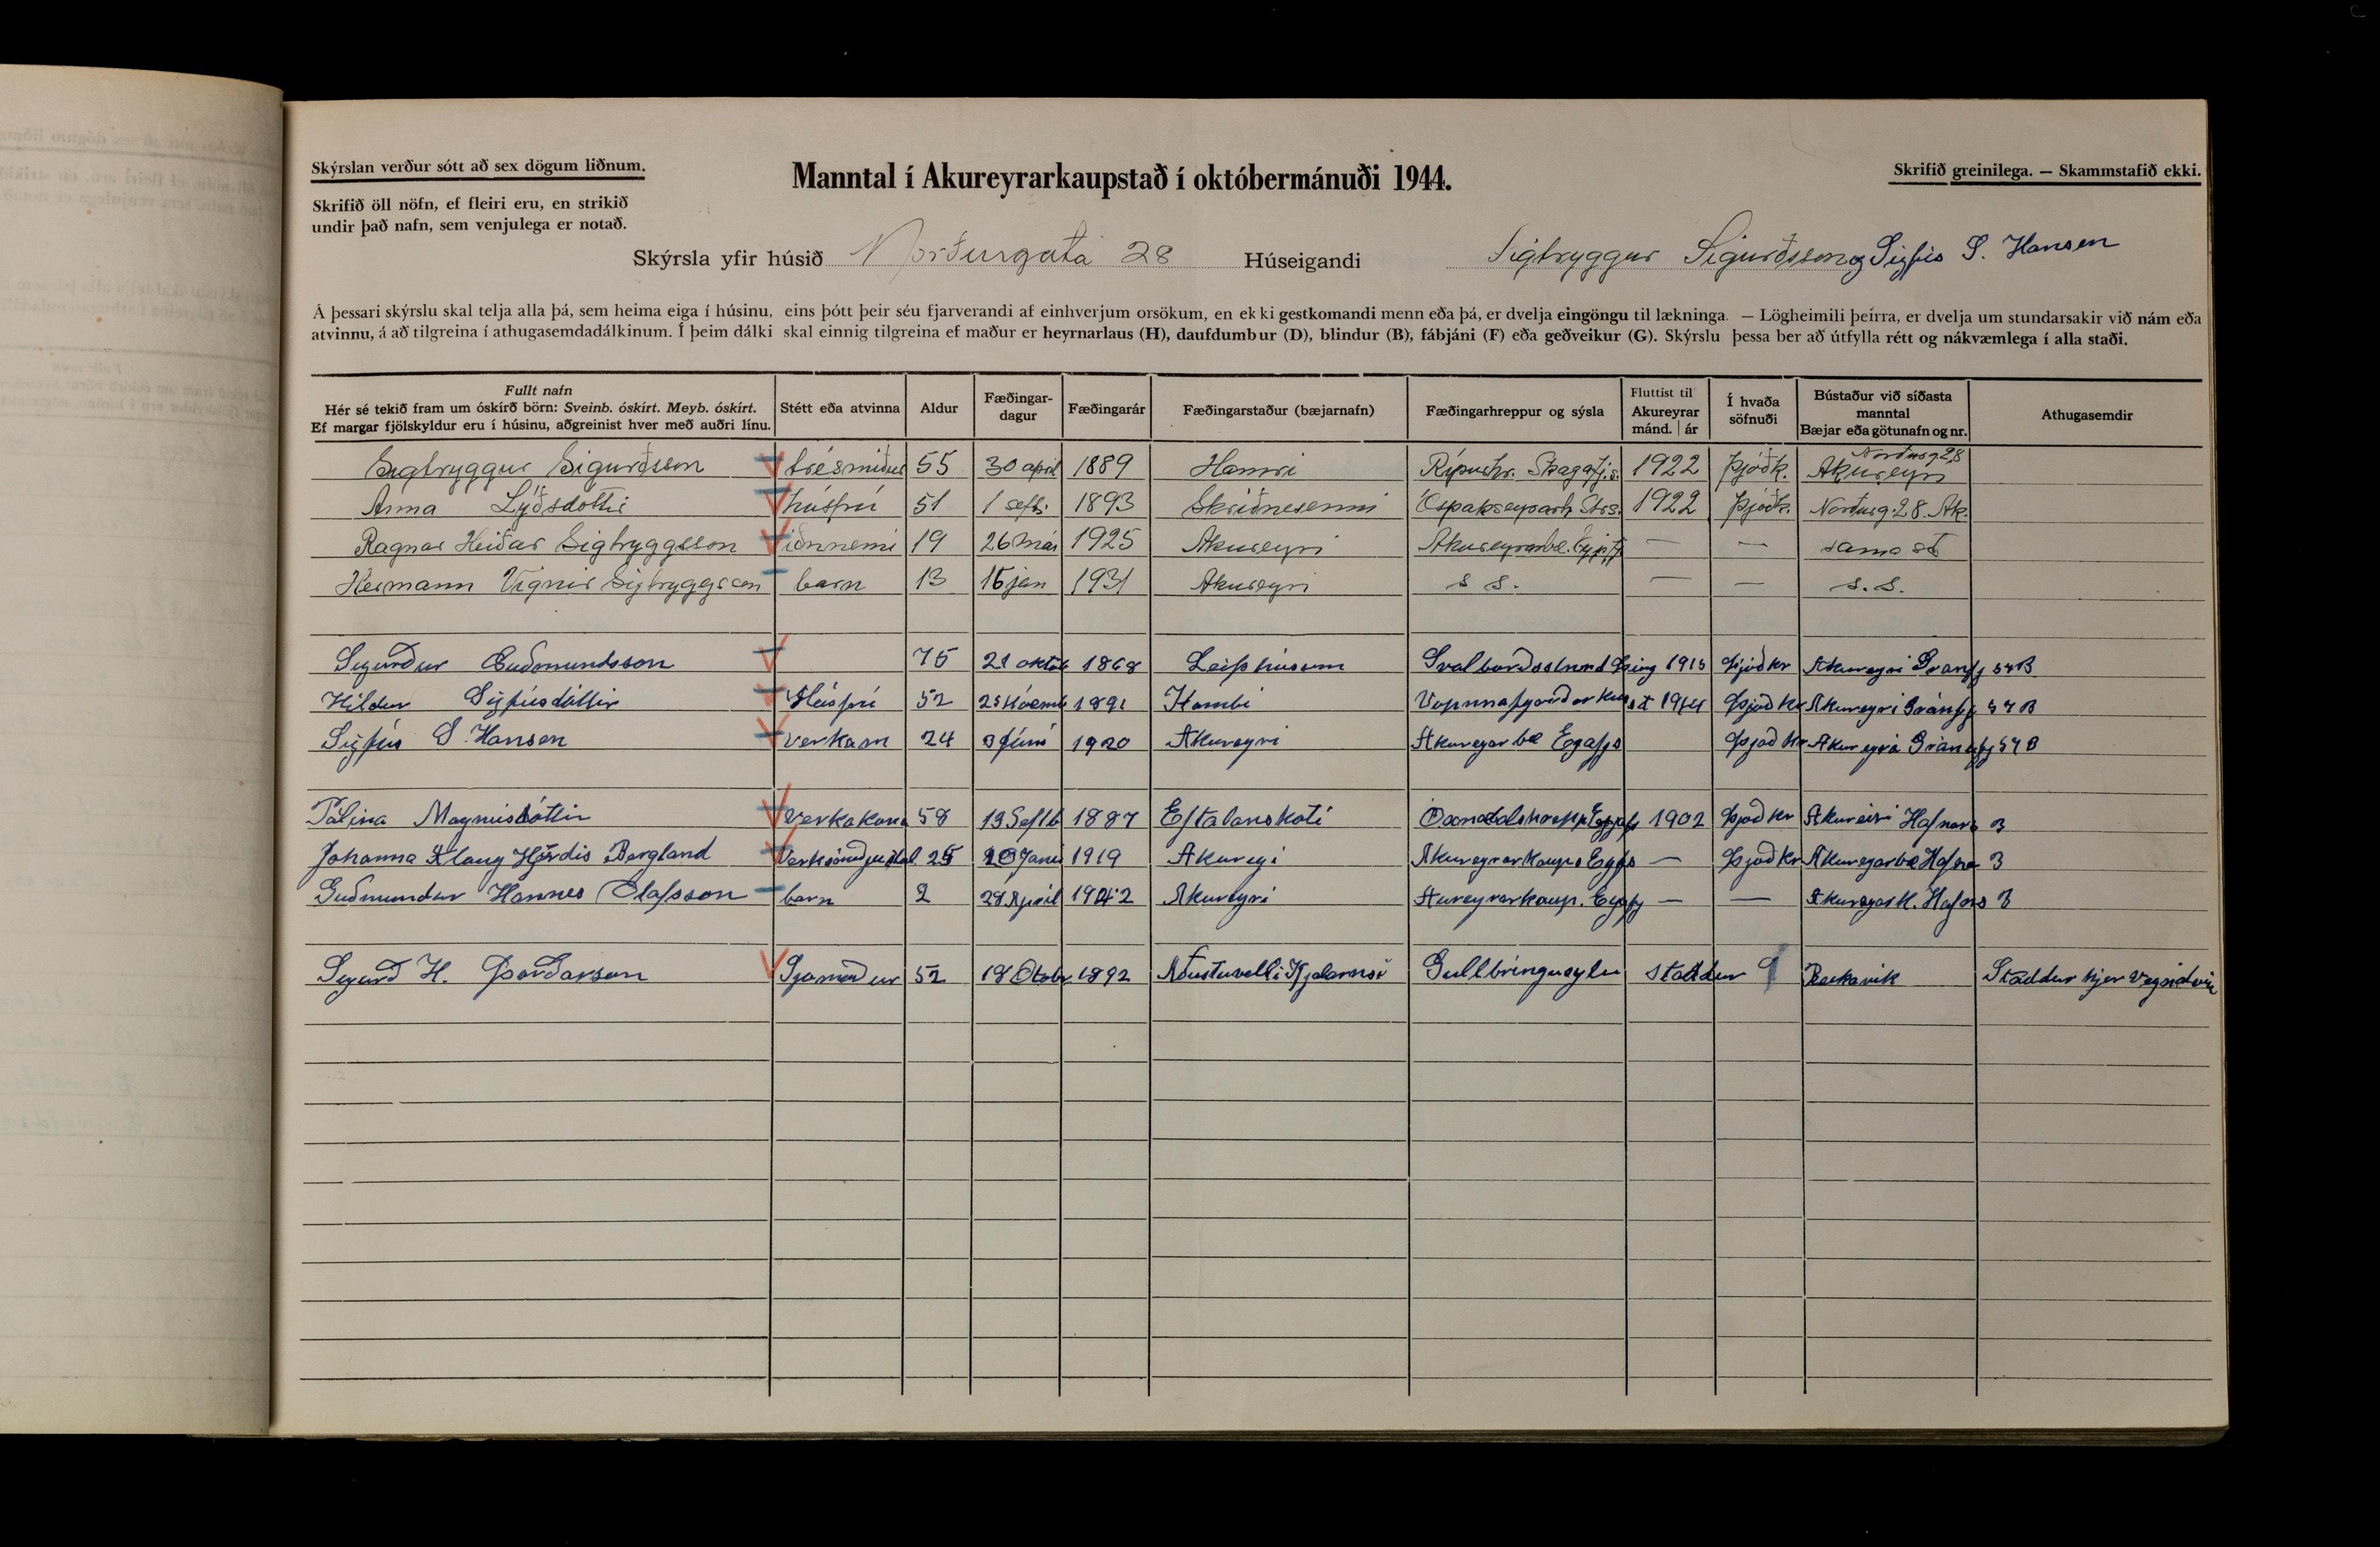 Skýrslan verður sótt að sex dögum liðnum.
Manntal í Akureyrarkaupstað í októbermánuði 1944.
Skrifið greinilega. — Skammstafið ekki.
Skrifið öll nöfn, ef fleiri eru, en strikið
undir það nafn, sem venjulega er notað.
Skýrsla yfir húsið Norðurgata 28 Húseigandi Sigtryggur Sigurðsson og Sigfús S. Hansen
Á þessari skýrslu skal telja alla þá, sem heima eiga í húsinu, eins þótt þeir séu fjarverandi af einhverjum orsökum, en ekki gestkomandi menn eða þá, er dvelja eingöngu til lækninga. — Lögheimili þeirra, er dvelja um stundarsakir við nám eða
atvinnu, á að tilgreina í athugasemdadálkinum. Í þeim dálki skal einnig tilgreina ef maður er heyrnarlaus (H), daufdumbur (D), blindur (B), fábjáni (F) eða geðveikur (G). Skýrslu þessa ber að útfylla rétt og nákvæmlega í alla staði.
Fullt nafn
Hér sé tekið fram um óskírð börn: Sveinb. óskírt. Meyb. óskírt.
Ef margar fjölskyldur eru í húsinu, aðgreinist hver með auðri línu.
Stétt eða atvinna
Aldur
Fæðingar-
dagur
Fæðingarár
Fæðingarstaður (bæjarnafn)
Fæðingarhreppur og sýsla
Fluttist til
Akureyrar
mánd. | ár
Í hvaða
söfnuði
Bústaður við síðasta
manntal
Bæjar eða götunafn og nr.
Athugasemdir
Sigtryggur Sigurðsson trésmiður 55 30 april 1889 Hamri Rípurhr. Skagafj.s. 1922 Þjóðk. Norðurg 28 Akureyri
Anna Lýðsdóttir húsfrú 51 1 sept. 1893 Skriðnesenni Óspakseyrarh Strs. 1922 Þjóðk. Norðurg. 28. Ak.
Ragnar Heiðar Sigtryggsson iðnnemi 19 26 mai 1925 Akureyri Akureyrarbæ. Eyjafj — — sama st
Hermann Vignir Sigtryggsson barn 13 15 jan 1931 Akureyri s s. — — s. s.
Sigurður Guðmundsson 75 21 oktob 1868 Leifshúsum Svalbarðsstrond Þing 1915 Þjóðkr Akureyri Gránfj 57B
Hildur Sigfúsdóttir Húsfrú 52 25 Nóemb 1891 Kambi 1914 Þjóð kr Akureyri Gránfj 57B
Sigfús S. Hansen verkam 24 3 Júni 1920 Akureyri Akureyarbæ Egafjs Þjóð kr Akureyri Gránfj 57 B
Pálina Magnúsdóttir Verkakona 58 13 Seftb 1887 Eftalanskoti Öxnadalshrepp Eyjafs 1902 Þjóð kr Akureiri Hafnars 3
Johanna Hlaug Hjördis Bergland 25 Janu 1919 Akureyi Akureyrarkaups Eyjfs — Þjóðkr Akureyarbæ Hafna 3
Guðmundur Hannes Olafsson barn 2 28 April 1942 Akureyri Aureyrarkaup. Eyjafj — — Akureyark. Hafns 3
Sigurð H. Þorðarson Sjomaður 52 18 Otobr 1892 Austuvelli Kjalarnsi Gullbringusyslu staddur Reekavik Staddur hjer